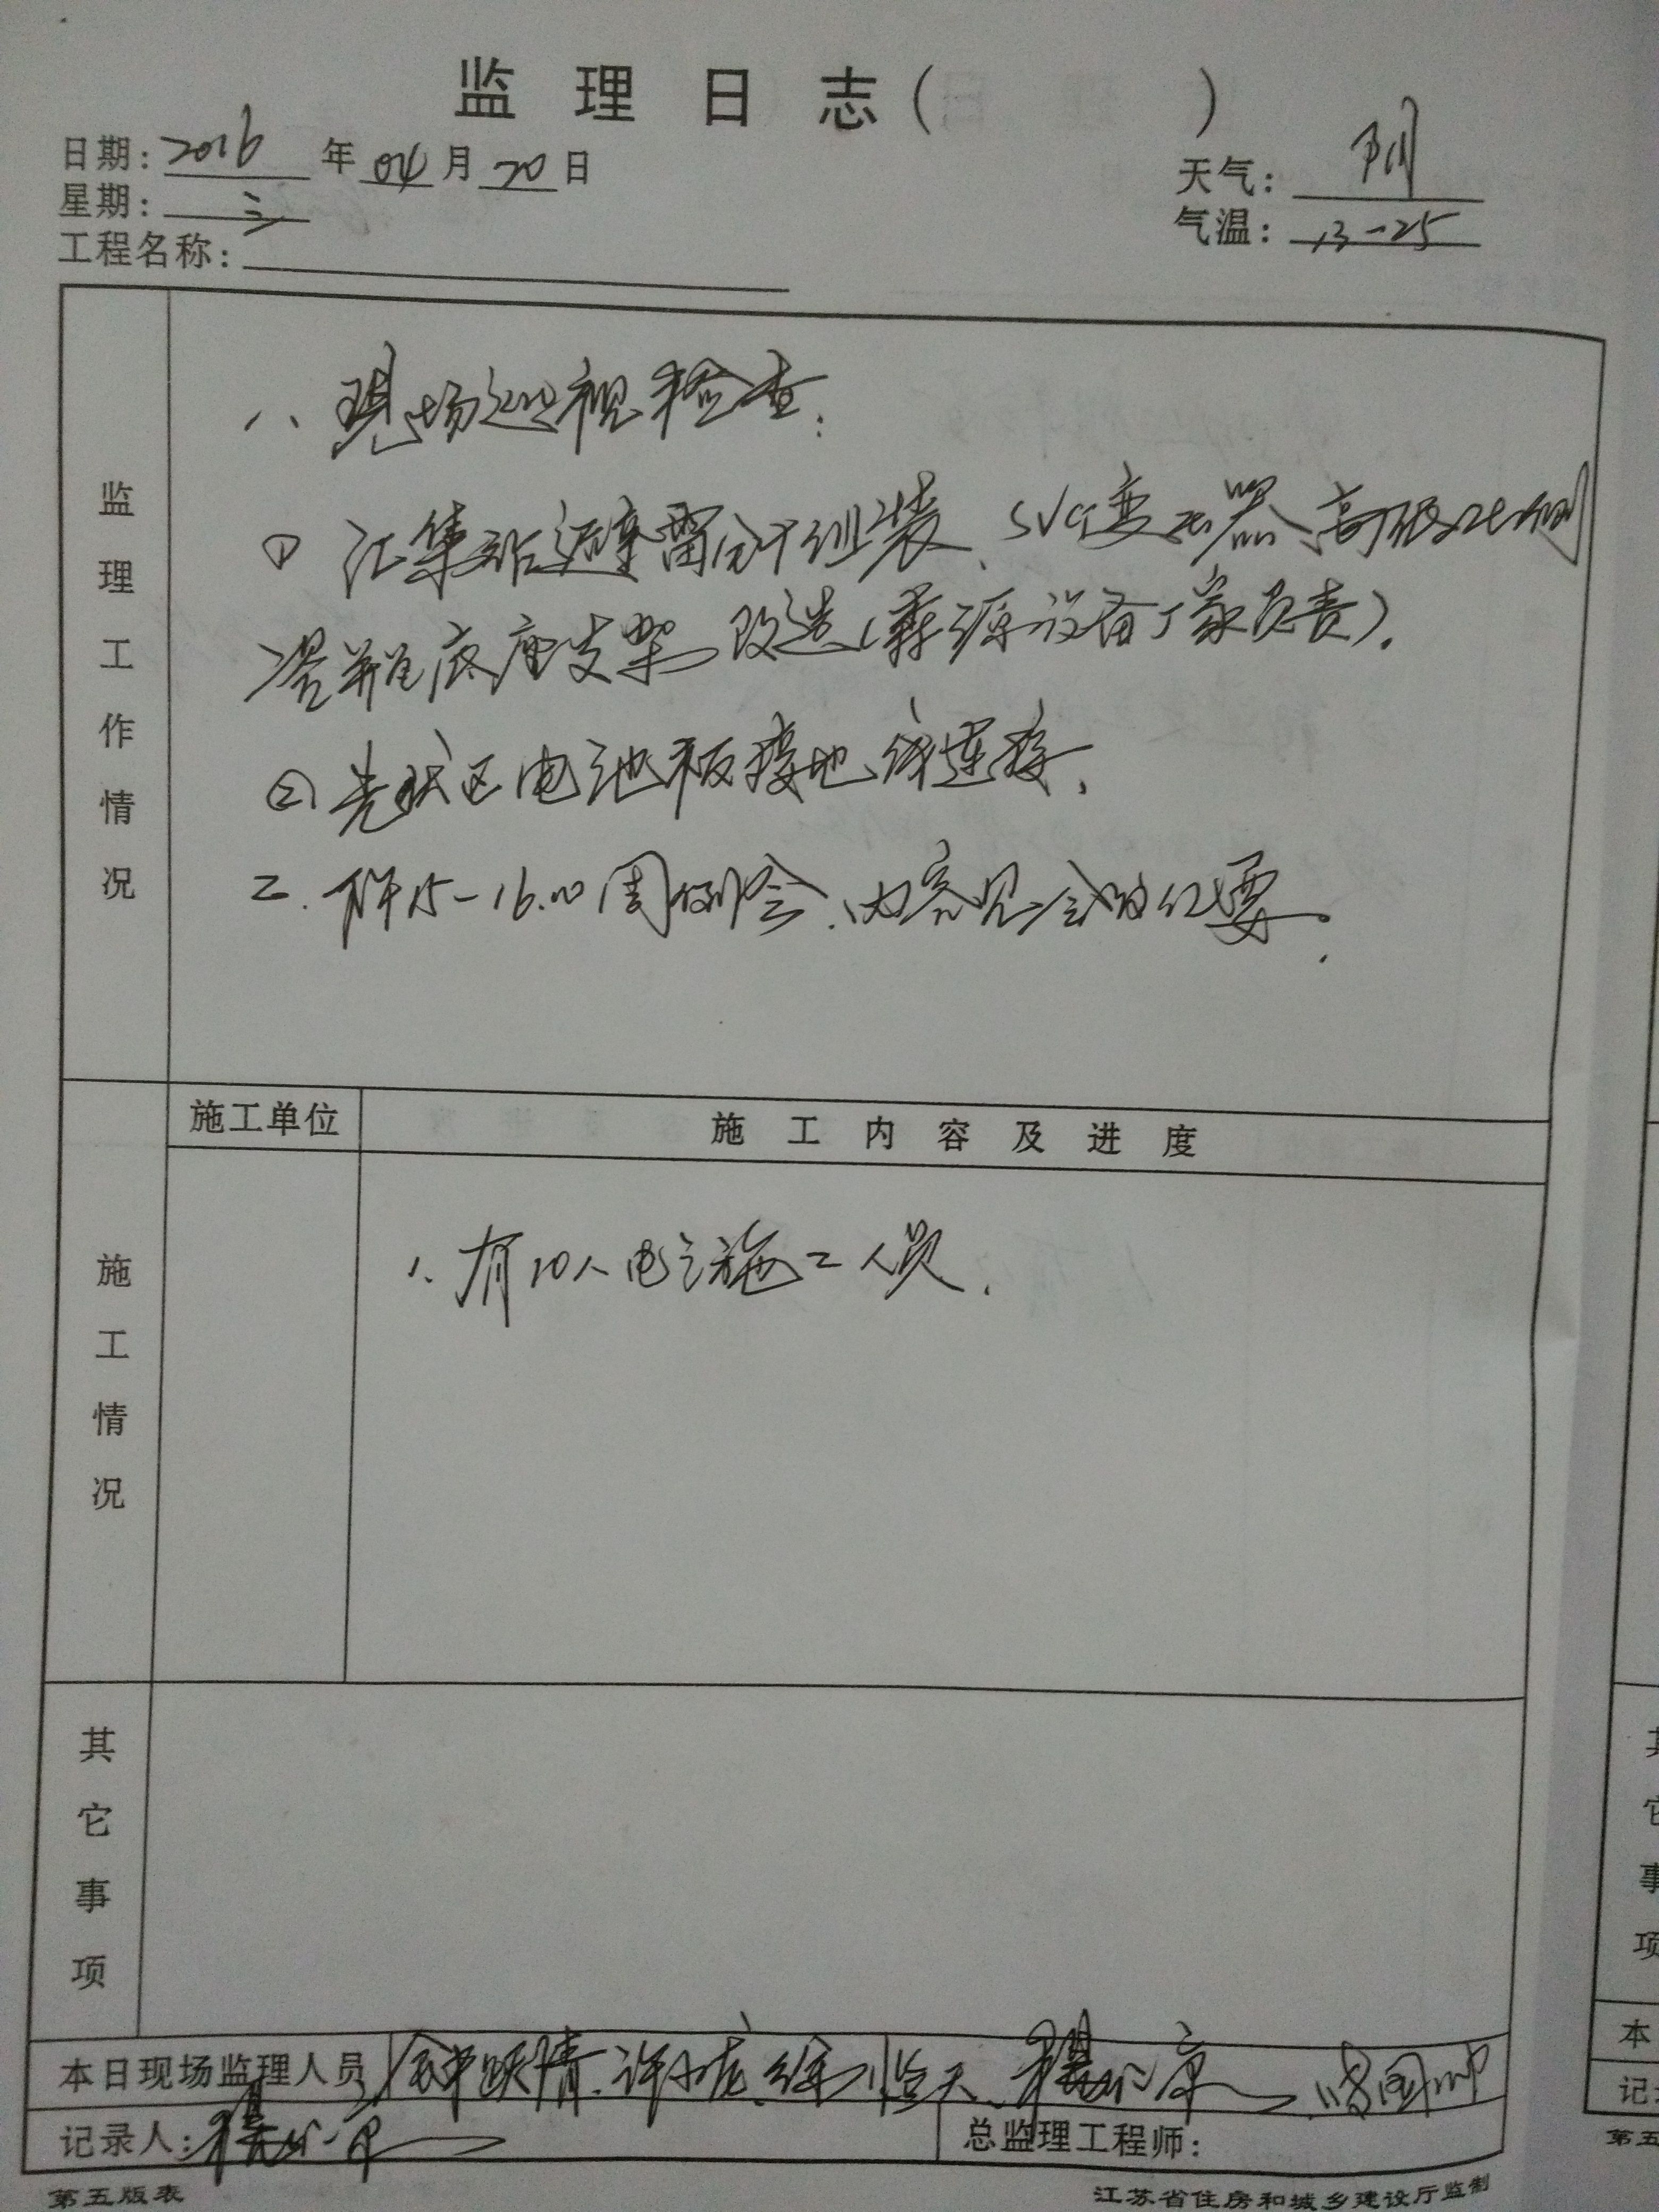 监理日志(          )
日期: 2016 年 04 月 20 日
天气: 阴
星期: 三
气温: 13-25
工程名称:
监理工作情况
一、现场巡视检查:
① 汇集站避雷针组装、SVG变压器、高低压侧
底座支架改造(森源设备厂家负责).
② 光伏区电池板接地线连接.
二. 下午15-16:00周例会.内容见会议纪要.
施工单位
施工内容及进度
施工情况
1. 有10人电气施工人员.
其它事项
本日现场监理人员
记录人:
总监理工程师:
第五版表
江苏省住房和城乡建设厅监制
其它事项
本
记
第五